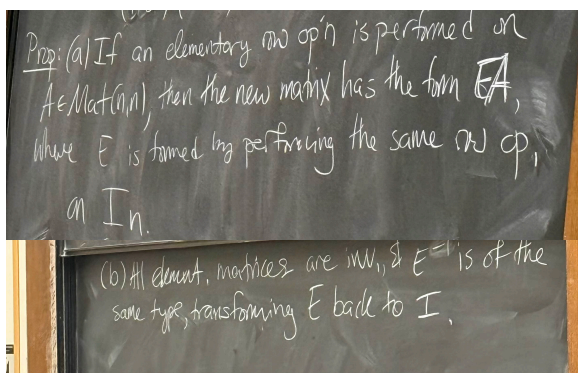 Prop: (a) If an elementary row op'n is performed on
A∈Mat(n,n), then the new matrix has the form EA,
where E is formed by performing the same row op.
on In.
(b) All element. matrices are inv., & E⁻¹ is of the
same type, transforming E back to I.